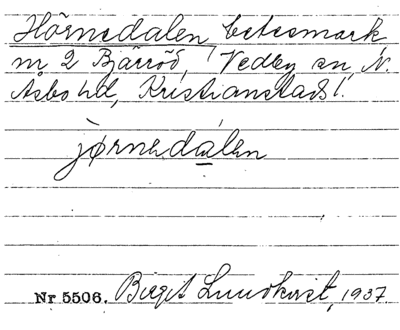 Hörnedalen, betesmark
m 2 Bjärröd, Vedby sn, N.
Åsbo hd, Kristianstads l.
jørnedalen
Nr 5506. Birgit Lundkvist, 1937.